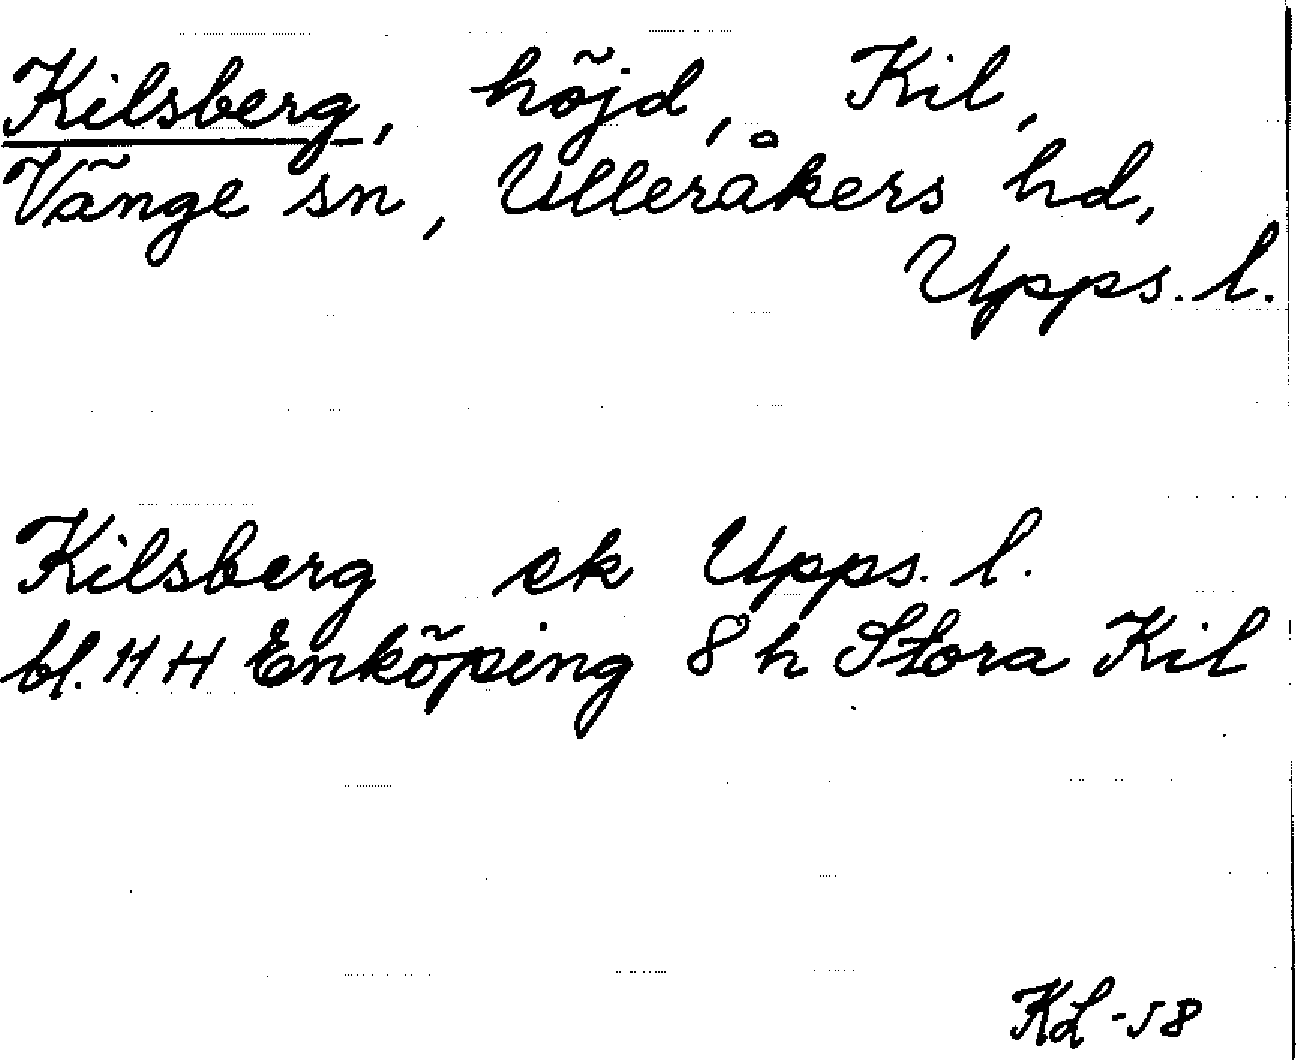 Kilsberg, höjd, Kil,
Vänge sn, Ulleråkers hd,
Upps. l.
Kilsberg ek Upps. l.
bl. 11 H Enköping 8 h Stora Kil
KL -58